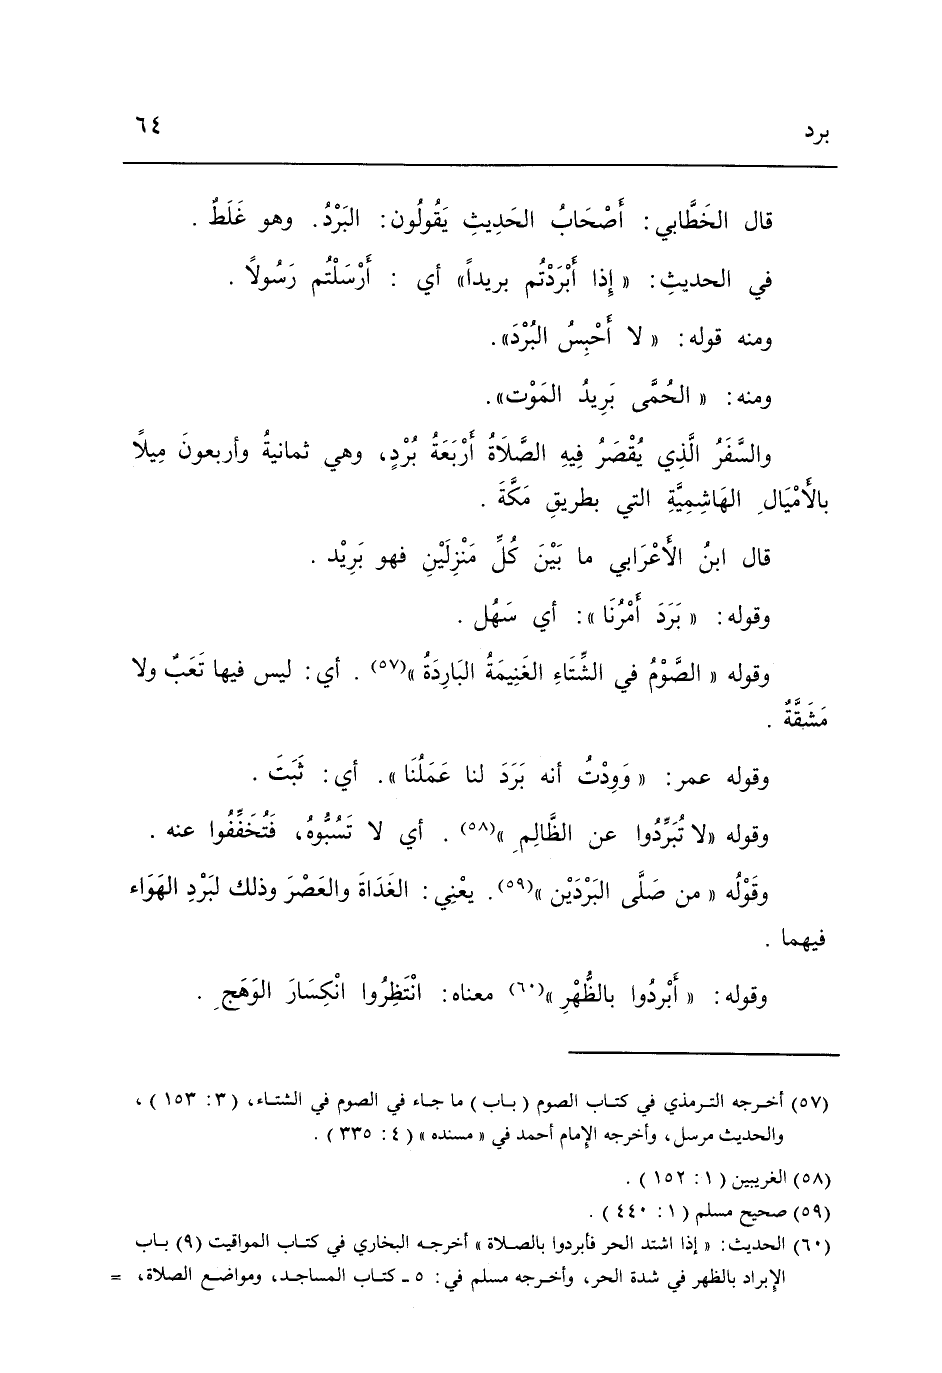 برد
٦٤
قال الخَطَّابي: أَصْحَابُ الحَدِيثِ يَقُولُون: البَرْدُ. وهو غَلَطٌ .
في الحديثِ: « إِذا أَبْرَدْتُم بريداً» أي : أَرْسَلْتُم رَسُولاً .
ومنه قوله: « لا أَحْبِسُ البُرْدَ».
ومنه: « الحُمَّى بَرِيدُ المَوْت».
والسَّفَرُ الَّذِي يُقْصَرُ فِيهِ الصَّلَاةُ أَرْبَعَةُ بُرْدٍ، وهي ثمانيةُ وأربعونَ مِيلًا
بالأَمْيَالِ الهَاشِمِيَّةِ التي بطريقِ مَكَّةَ .
قال ابنُ الأَعْرَابي ما بَيْنَ كُلِّ مَنْزِلَيْنِ فهو بَرِيْد .
وقوله: « بَرَدَ أَمْرُنَا »: أي سَهُل .
وقوله « الصَّوْمُ في الشِّتَاءِ الغَنِيمَةُ البَارِدَةُ »(٥٧) . أي: ليس فيها تَعَبٌ ولا
مَشَقَّةٌ .
وقوله عمر: « وَودْتُ أنه بَرَدَ لنا عَمَلُنَا ». أي: ثَبَتَ .
وقوله «لا تُبَرِّدُوا عن الظَّالِمِ »(٥٨) . أي لا تَسُبُّوهُ، فَتُخَفِّفُوا عنه .
وقَوْلُه « من صَلَّى البَرْدَيْن »(٥٩). يعْنِي: الغَدَاةَ والعَصْرَ وذلك لبَرْدِ الهَوَاء
فيهما .
وقوله: « أَبْردُوا بالظُّهْرِ »(٦٠) معناه: انْتَظِرُوا انْكِسَارَ الوَهَجِ .
(٥٧) أخرجه الترمذي في كتاب الصوم ( باب ) ما جاء في الصوم في الشتاء، ( ٣: ١٥٣ ) ،
والحديث مرسل، وأخرجه الإمام أحمد في « مسنده » ( ٤: ٣٣٥ ) .
(٥٨) الغريبين ( ١: ١٥٢ ) .
(٥٩) صحيح مسلم ( ١: ٤٤٠ ) .
(٦٠) الحديث: « إذا اشتد الحر فأبردوا بالصلاة » أخرجه البخاري في كتاب المواقيت (٩) باب
الإبراد بالظهر في شدة الحر، وأخرجه مسلم في: ٥ ـ كتاب المساجد، ومواضع الصلاة، =